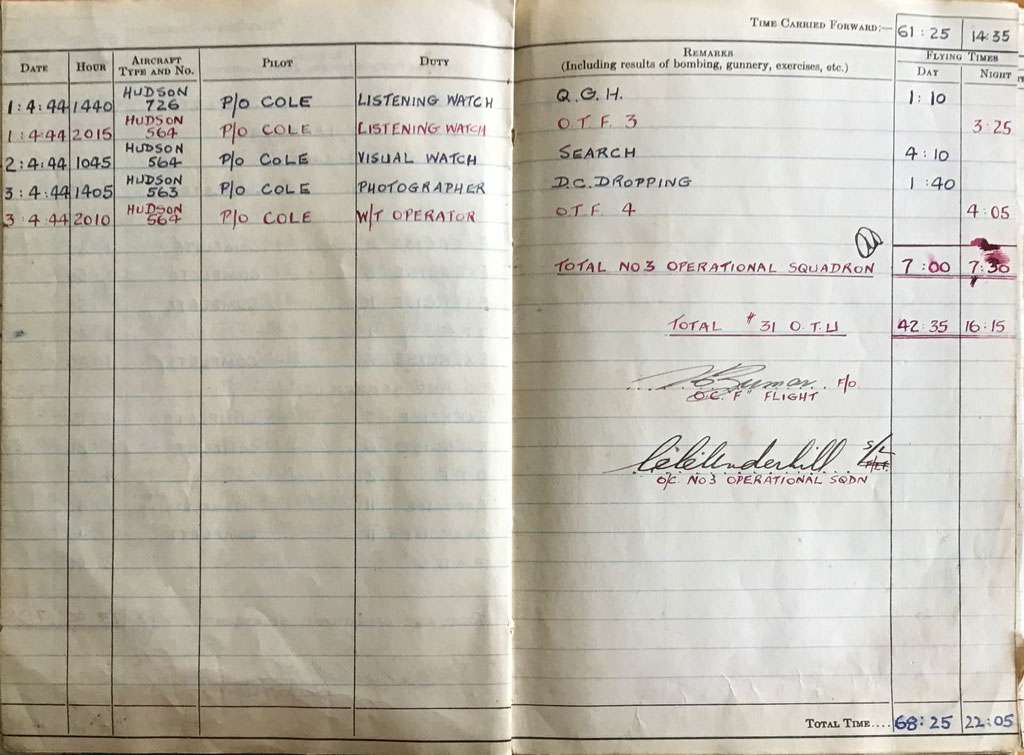 TIME CARRIED FORWARD:— 61:25 14:35
DATE HOUR AIRCRAFT TYPE AND NO. PILOT DUTY REMARKS (Including results of bombing, gunnery, exercises, etc.) FLYING TIMES DAY NIGHT
1:4:44 1440 HUDSON 726 P/O COLE LISTENING WATCH Q.G.H. 1:10
1:4:44 2015 HUDSON 564 P/O COLE LISTENING WATCH O.T.F. 3 3:25
2:4:44 1045 HUDSON 564 P/O COLE VISUAL WATCH SEARCH 4:10
3:4:44 1405 HUDSON 563 P/O COLE PHOTOGRAPHER D.C. DROPPING 1:40
3 4:44 2010 HUDSON 564 P/O COLE W/T OPERATOR O.T.F. 4 4:05
TOTAL NO 3 OPERATIONAL SQUADRON 7:00 7:30
TOTAL #31 O.T.U 42:35 16:15
F/O
O.C. "F" FLIGHT
Underhill S/L
O/C NO3 OPERATIONAL SQDN
TOTAL TIME.... 68:25 22:05